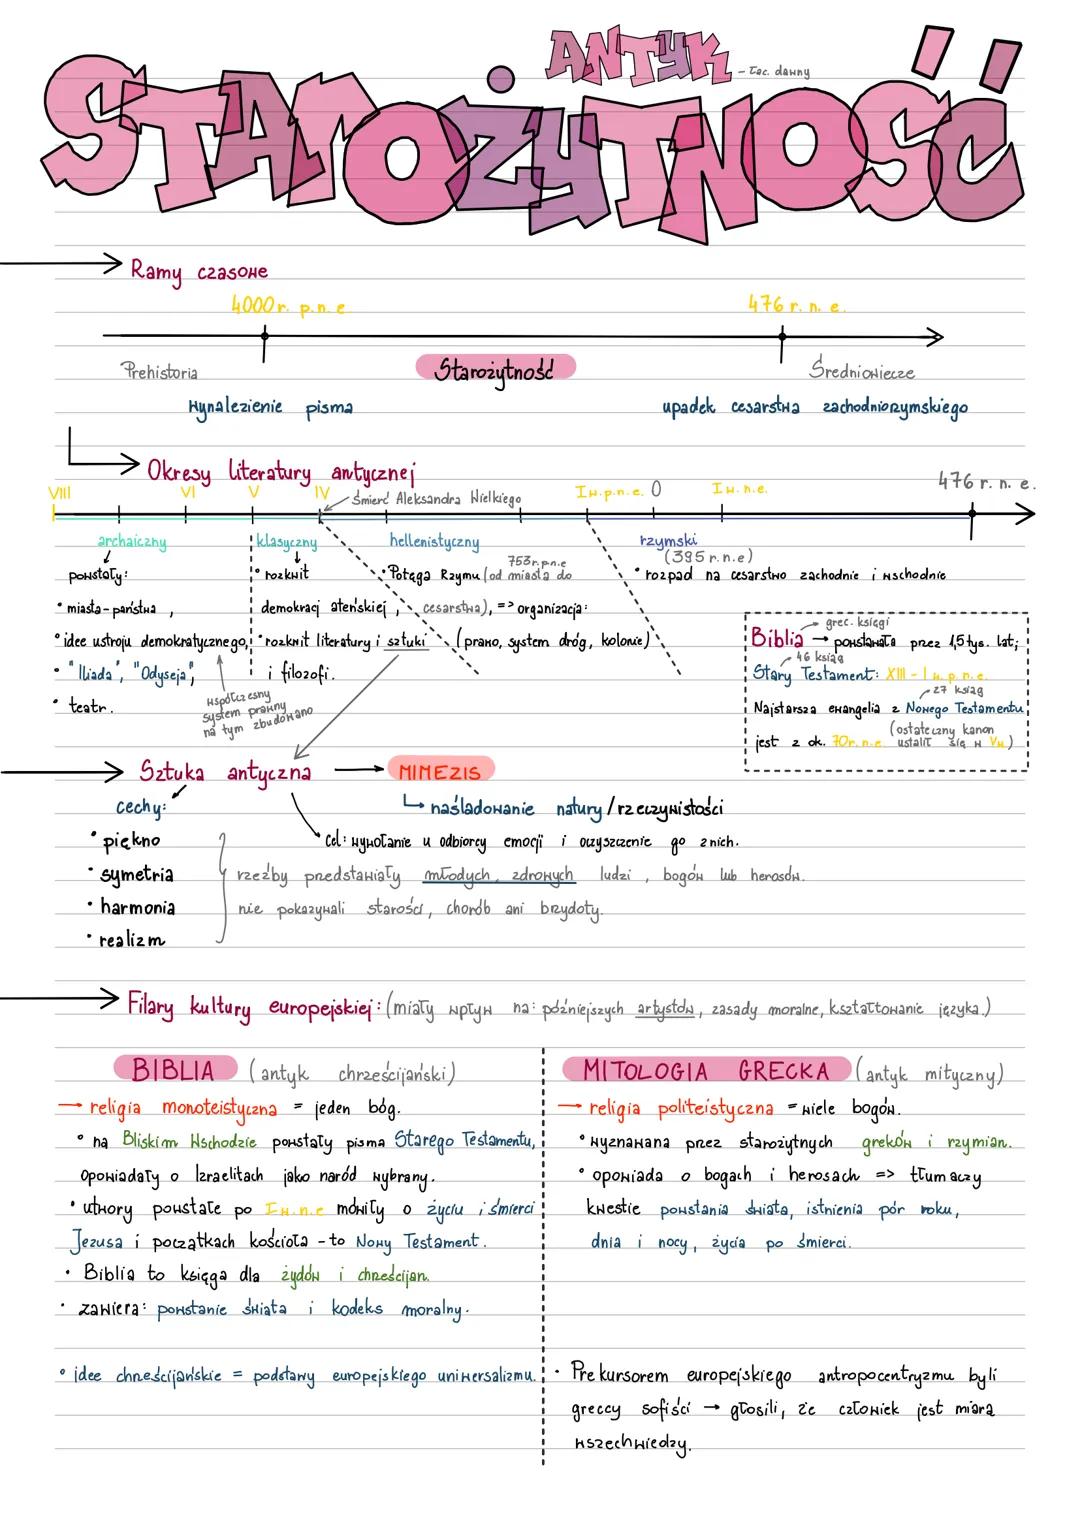 ANTYK - łac. dawny
STAROŻYTNOŚĆ
Ramy czasowe
4000 r. p.n.e 476 r. n. e.
Prehistoria Starożytność Średniowiecze
wynalezienie pisma upadek cesarstwa zachodniorzymskiego
Okresy literatury antycznej
476 r. n. e.
VIII VI V IV Śmierć Aleksandra Wielkiego I w. p.n.e. 0 I w. n.e.
archaiczny klasyczny hellenistyczny rzymski
(395 r.n.e)
powstały:
• miasta-państwa,
• idee ustroju demokratycznego,
• "Iliada", "Odyseja",
• teatr.
współczesny
system prawny
na tym zbudowano
• rozkwit
demokracji ateńskiej,
• rozkwit literatury i sztuki
i filozofi.
753 r.p.n.e
• Potęga Rzymu (od miasta do
cesarstwa), => organizacja:
(prawo, system dróg, kolonie)
• rozpad na cesarstwo zachodnie i wschodnie
grec. księgi
Biblia → powstawała przez 1,5 tys. lat;
46 ksiąg
Stary Testament: XIII - I w. p. n. e.
27 ksiąg
Najstarsza ewangelia z Nowego Testamentu
jest z ok. 70 r. n.e. (ostateczny kanon
ustalił się w V w)
Sztuka antyczna → MIMEZIS
cechy: naśladowanie natury / rzeczywistości
• piękno
Cel: wywołanie u odbiorcy emocji i oczyszczenie go z nich.
• symetria
rzeźby przedstawiały młodych, zdrowych ludzi, bogów lub herosów.
• harmonia
nie pokazywali starości, chorób ani brzydoty.
• realizm
Filary kultury europejskiej: (miały wpływ na: późniejszych artystów, zasady moralne, kształtowanie języka.)
BIBLIA (antyk chrześcijański)
→ religia monoteistyczna = jeden bóg.
• na Bliskim Wschodzie powstały pisma Starego Testamentu,
opowiadały o Izraelitach jako naród wybrany.
• utwory powstałe po I w. n. e mówiły o życiu i śmierci
Jezusa i początkach kościoła - to Nowy Testament.
• Biblia to księga dla żydów i chrześcijan.
• zawiera: powstanie świata i kodeks moralny.
• idee chrześcijańskie = podstawy europejskiego uniwersalizmu.
MITOLOGIA GRECKA (antyk mityczny)
→ religia politeistyczna = wiele bogów.
• wyznawana przez starożytnych greków i rzymian.
• opowiada o bogach i herosach => tłumaczy
kwestie powstania świata, istnienia pór roku,
dnia i nocy, życia po śmierci.
• Prekursorem europejskiego antropocentryzmu byli
greccy sofiści → głosili, że człowiek jest miarą
wszechwiedzy.